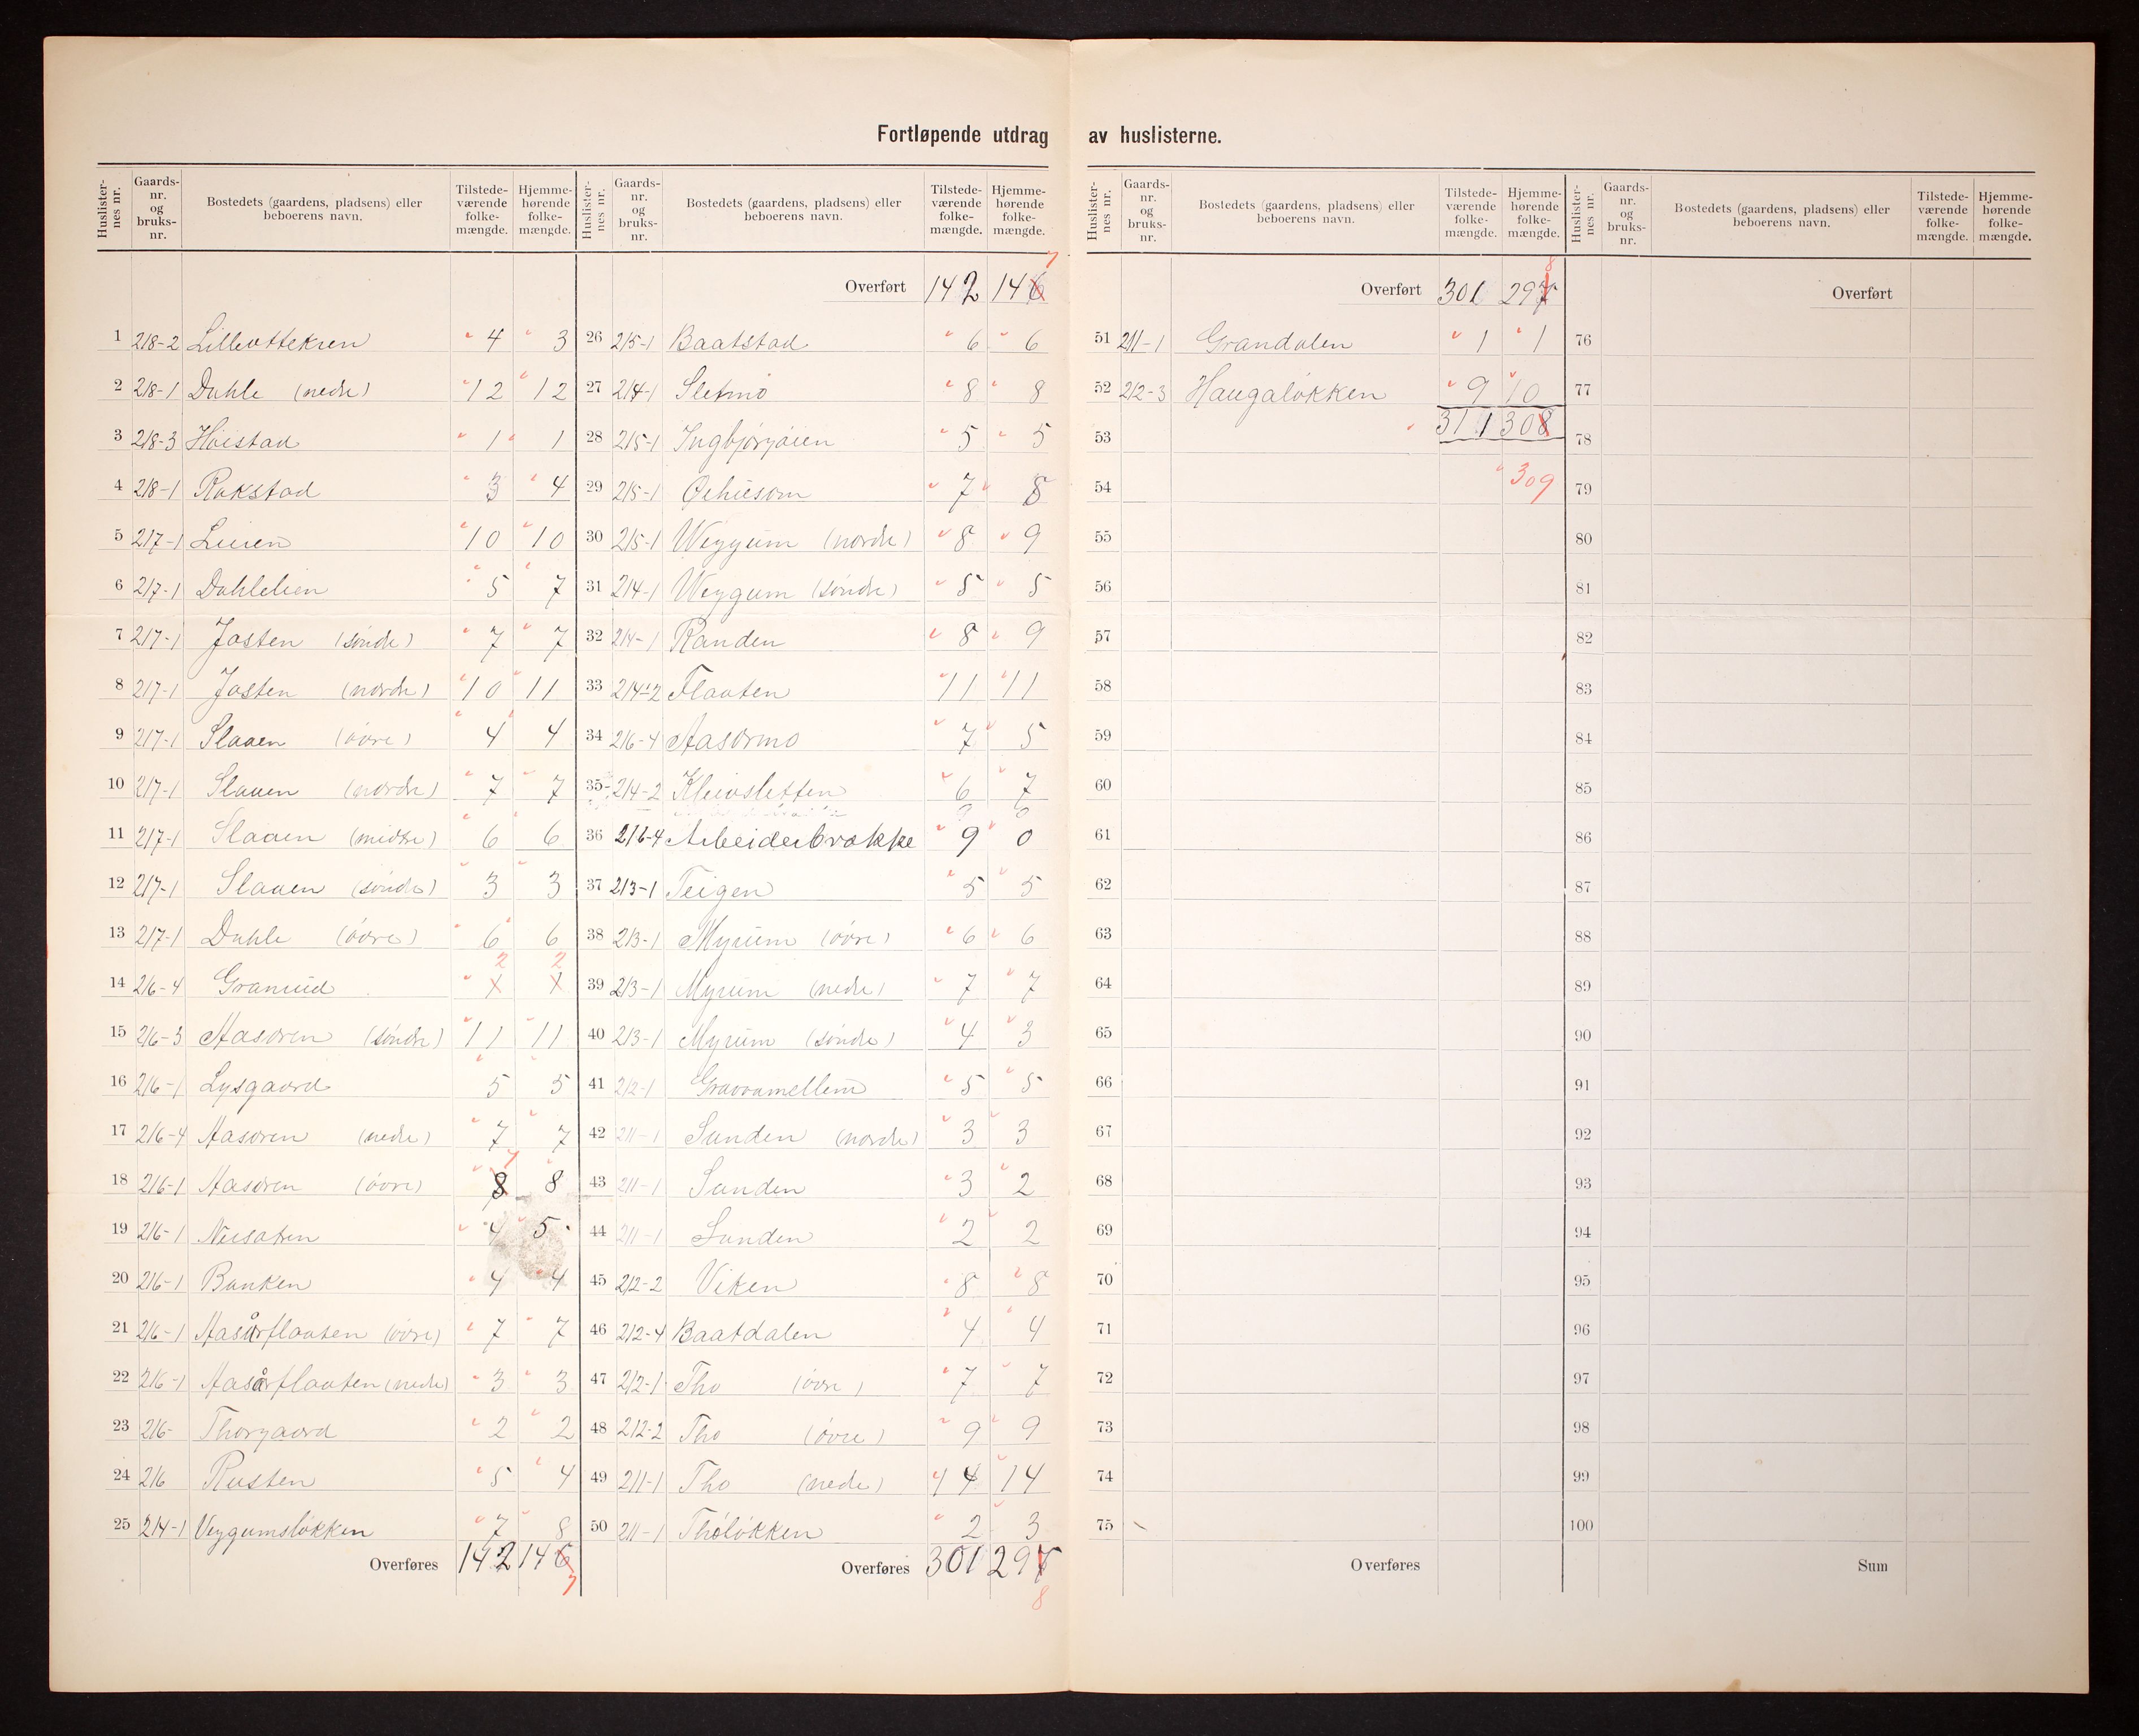 Fortløpende utdrag av huslisterne.
Huslister-nes nr. | Gaards-nr. og bruks-nr. | Bostedets (gaardens, pladsens) eller beboerens navn. | Tilstede-værende folke-mængde. | Hjemme-hørende folke-mængde.
1 218-2 Lilleottekren 4 3
2 218-1 Dahle (nedre) 12 12
3 218-3 Höistad 1 1
4 218-1 Rakstad 3 4
5 217-1 10 10
6 217-1 Dahlelien 5 7
7 217-1 Josten (söndre) 7 7
8 217-1 Josten (nordre) 10 11
9 217-1 Slaaen (övre) 4 4
10 217-1 Slaaen (nordre) 7 7
11 217-1 Slaaen (midtre) 6 6
12 217-1 Slaaen (söndre) 3 3
13 217-1 Dahle (övre) 6 6
14 216-4 Granrud 2 2
15 216-3 Aasoren (söndre) 11 11
16 216-1 Lysgaard 5 5
17 216-4 Aasoren (nedre) 7 7
18 216-1 Aasoren (övre) 8 7 8
19 216-1 4 5
20 216-1 Banken 4 4
21 216-1 Aasårflaaten (övre) 7 7
22 216-1 Aasårflaaten (nedre) 3 3
23 216- Thorgaard 2 2
24 216 Rusten 5 4
25 214-1 Veggumslökken 7 8
Overføres 142 146 7
Huslister-nes nr. | Gaards-nr. og bruks-nr. | Bostedets (gaardens, pladsens) eller beboerens navn. | Tilstede-værende folke-mængde. | Hjemme-hørende folke-mængde.
Overført 142 146 7
26 215-1 Baatstad 6 6
27 214-1 Sletmo 8 8
28 215-1 Ingbjørgöien 5 5
29 215-1 7 8
30 215-1 Weggum (nordre) 8 9
31 214-1 Weggum (söndre) 5 5
32 214-1 Randen 8 9
33 214-2 Flaaten 11 11
34 216-4 Aasormo 7 5
35 214-2 Kleivsletten 6 7
36 216-4 Arbeiderbrakke 9 0
37 213-1 Teigen 5 5
38 213-1 Myrum (övre) 6 6
39 213-1 Myrum (nedre) 7 7
40 213-1 Myrum (söndre) 4 3
41 212-1 Graovamellem 5 5
42 211-1 Sanden (nordre) 3 3
43 211-1 Sanden 3 2
44 211-1 Sanden 2 2
45 212-2 Viken 8 8
46 212-4 Baatdalen 4 4
47 212-1 Tho (övre) 7 7
48 212-2 Tho (övre) 9 9
49 211-1 Tho (nedre) 14 14
50 211-1 Thölökken 2 3
Overføres 301 297 8
Huslister-nes nr. | Gaards-nr. og bruks-nr. | Bostedets (gaardens, pladsens) eller beboerens navn. | Tilstede-værende folke-mængde. | Hjemme-hørende folke-mængde.
Overført 301 297 8
51 211-1 Grandalen 1 1
52 212-3 Haugalökken 9 10
53 311 308
54 309
55
56
57
58
59
60
61
62
63
64
65
66
67
68
69
70
71
72
73
74
75
Overføres
Huslister-nes nr. | Gaards-nr. og bruks-nr. | Bostedets (gaardens, pladsens) eller beboerens navn. | Tilstede-værende folke-mængde. | Hjemme-hørende folke-mængde.
Overført
76
77
78
79
80
81
82
83
84
85
86
87
88
89
90
91
92
93
94
95
96
97
98
99
100
Sum